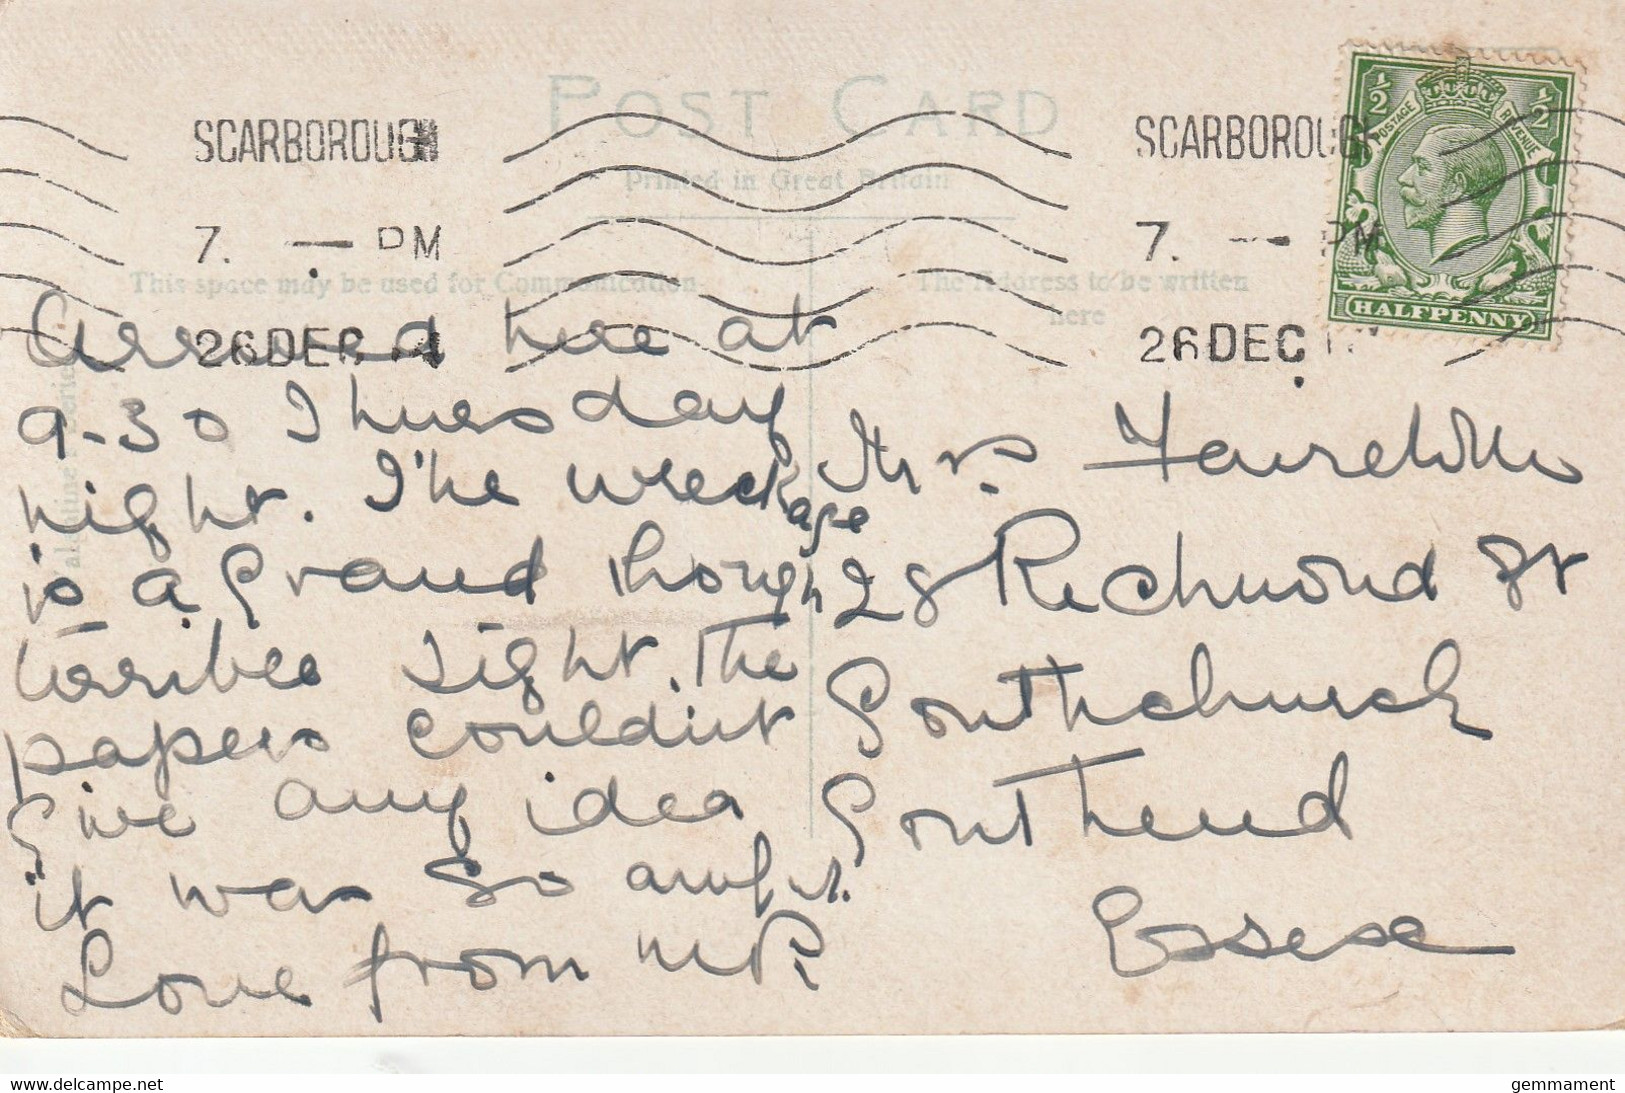 POST CARD
Printed in Great Britain
SCARBOROUGH
7. — PM
26 DEC 14
SCARBOROUGH
7. — PM
26 DEC
½ ½
POSTAGE REVENUE
HALFPENNY
This space may be used for Communication
The Address to be written
here
Arrived here at
9-30 Thuesday
night. The wreckage
is a Grand though
terribee sight. The
papers couldint
Give any idea
it was so awful.
Love from
Mrs
28 Richmond St
Southchurch
Southend
Essex
delcampe.net
gemmament